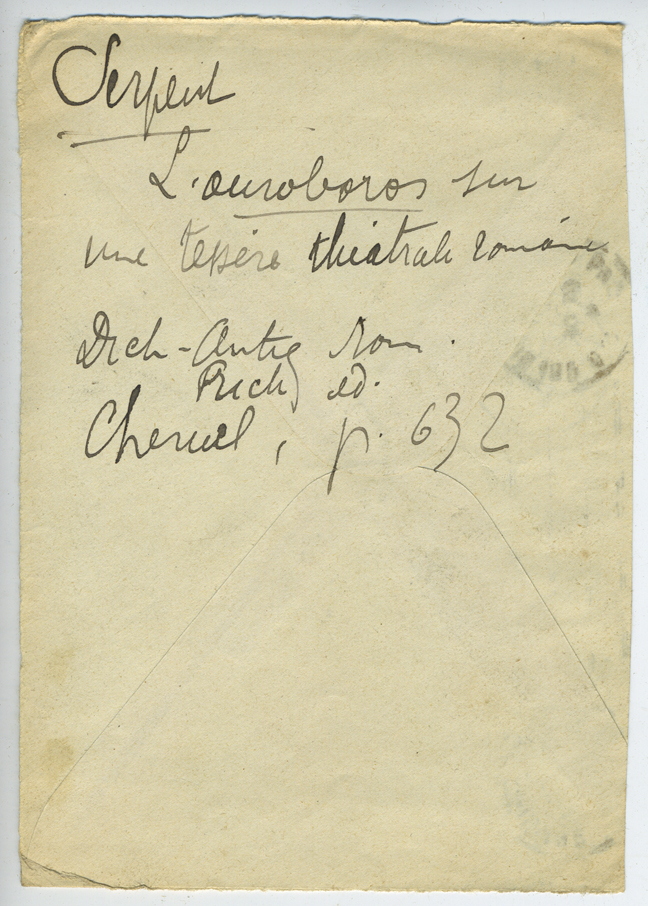 Serpent
L'ouroboros sur
une tessère théâtrale romaine
Dict. Antiq Rom.
Rich, ed.
Cheruel, p. 632